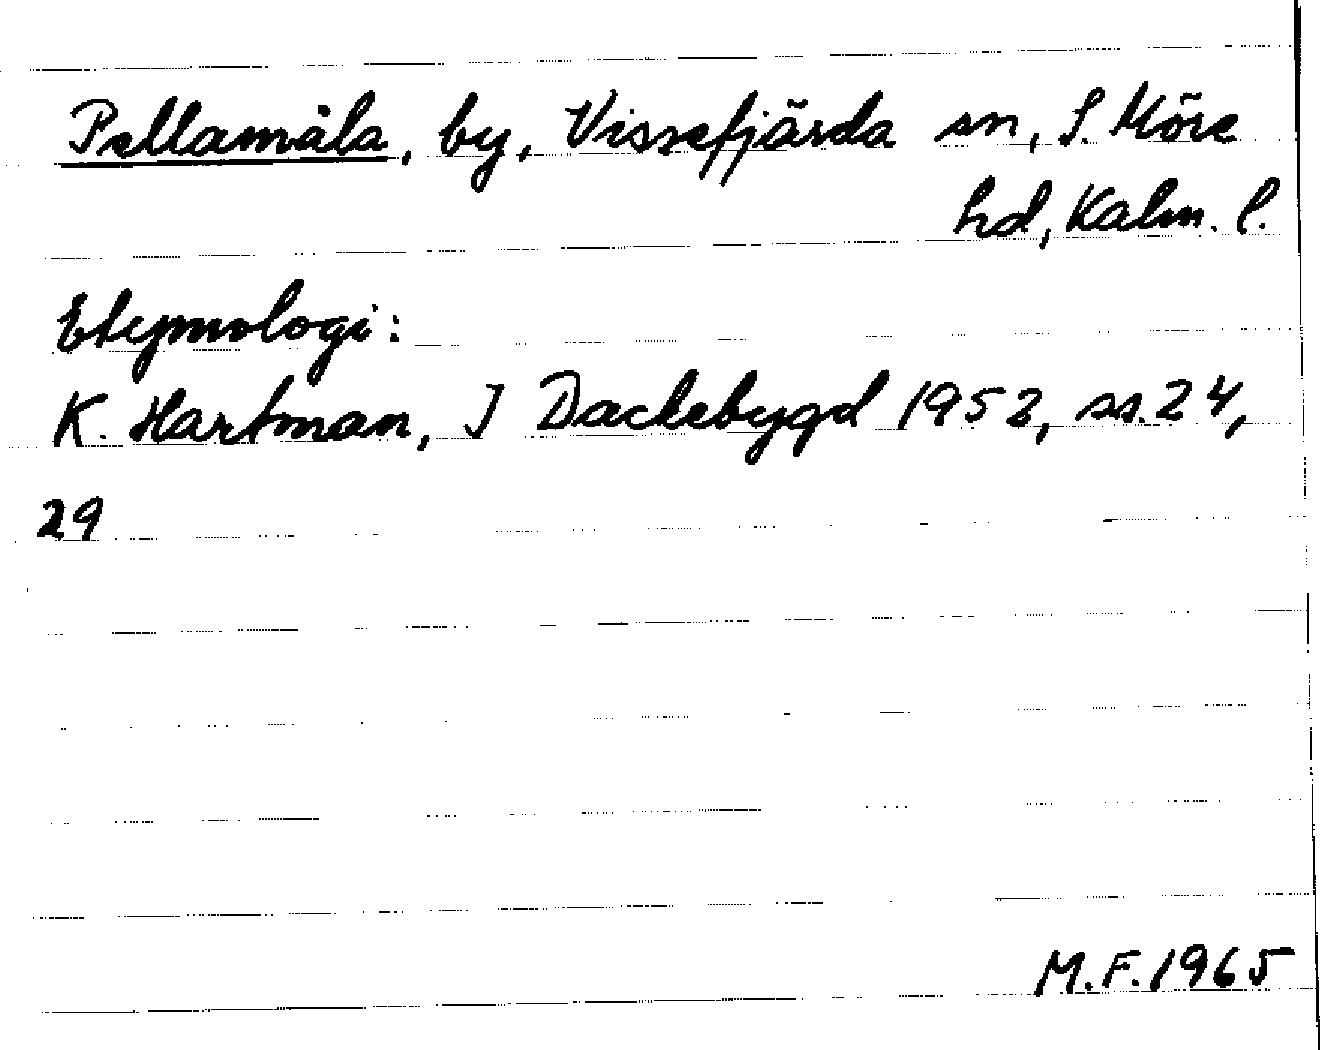 Pellamåla, by, Vissefjärda sn, S. Möre
hd, Kalm. l.
Etymologi:
K. Hartman, I Dackebygd 1952, ss. 24,
29
M.F. 1965